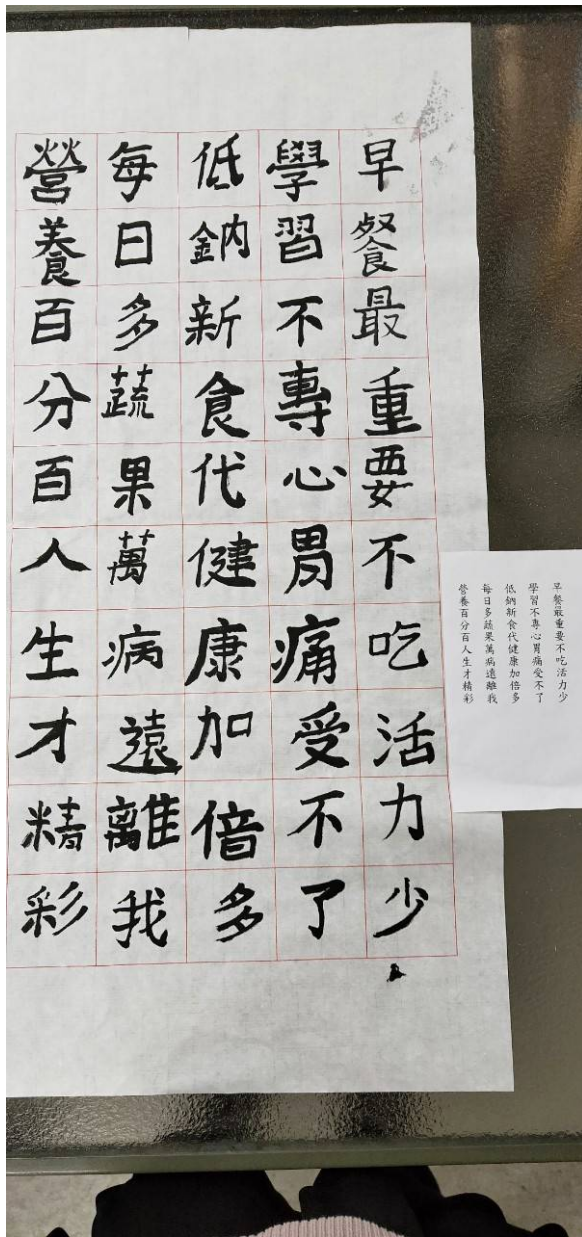 早餐最重要不吃活力少
學習不專心胃痛受不了
低鈉新食代健康加倍多
每日多蔬果萬病遠離我
營養百分百人生才精彩
早餐最重要不吃活力少
學習不專心胃痛受不了
低鈉新食代健康加倍多
每日多蔬果萬病遠離我
營養百分百人生才精彩